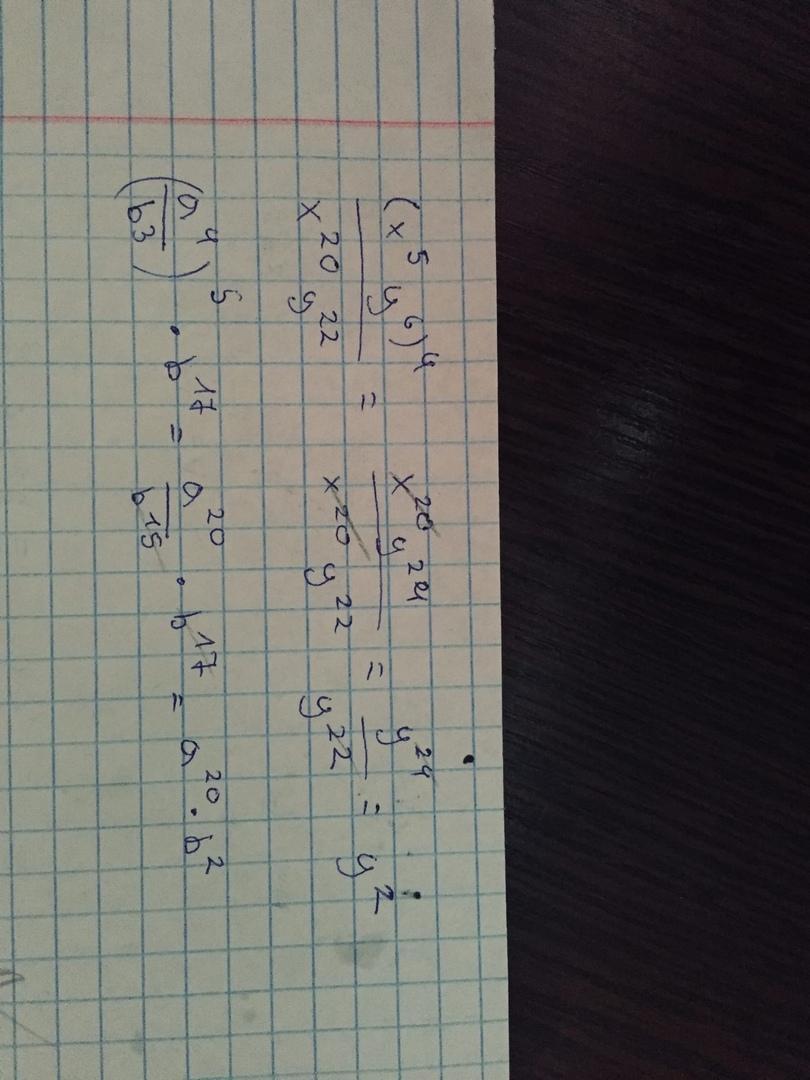 (x⁵ y⁶)⁴ / x²⁰ y²² = x²⁰ y²⁴ / x²⁰ y²² = y²⁴ / y²² = y²
(a⁴ / b³)⁵ · b¹⁷ = a²⁰ / b¹⁵ · b¹⁷ = a²⁰ · b²